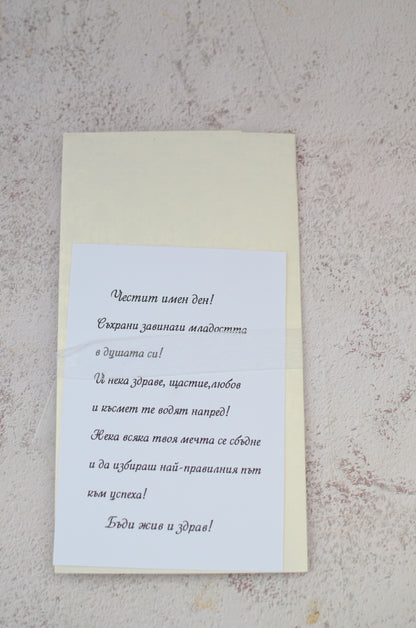 Честит имен ден!
Съхрани завинаги младостта
в душата си!
И нека здраве, щастие,любов
и късмет те водят напред!
Нека всяка твоя мечта се сбъдне
и да избираш най-правилния път
към успеха!
Бъди жив и здрав!